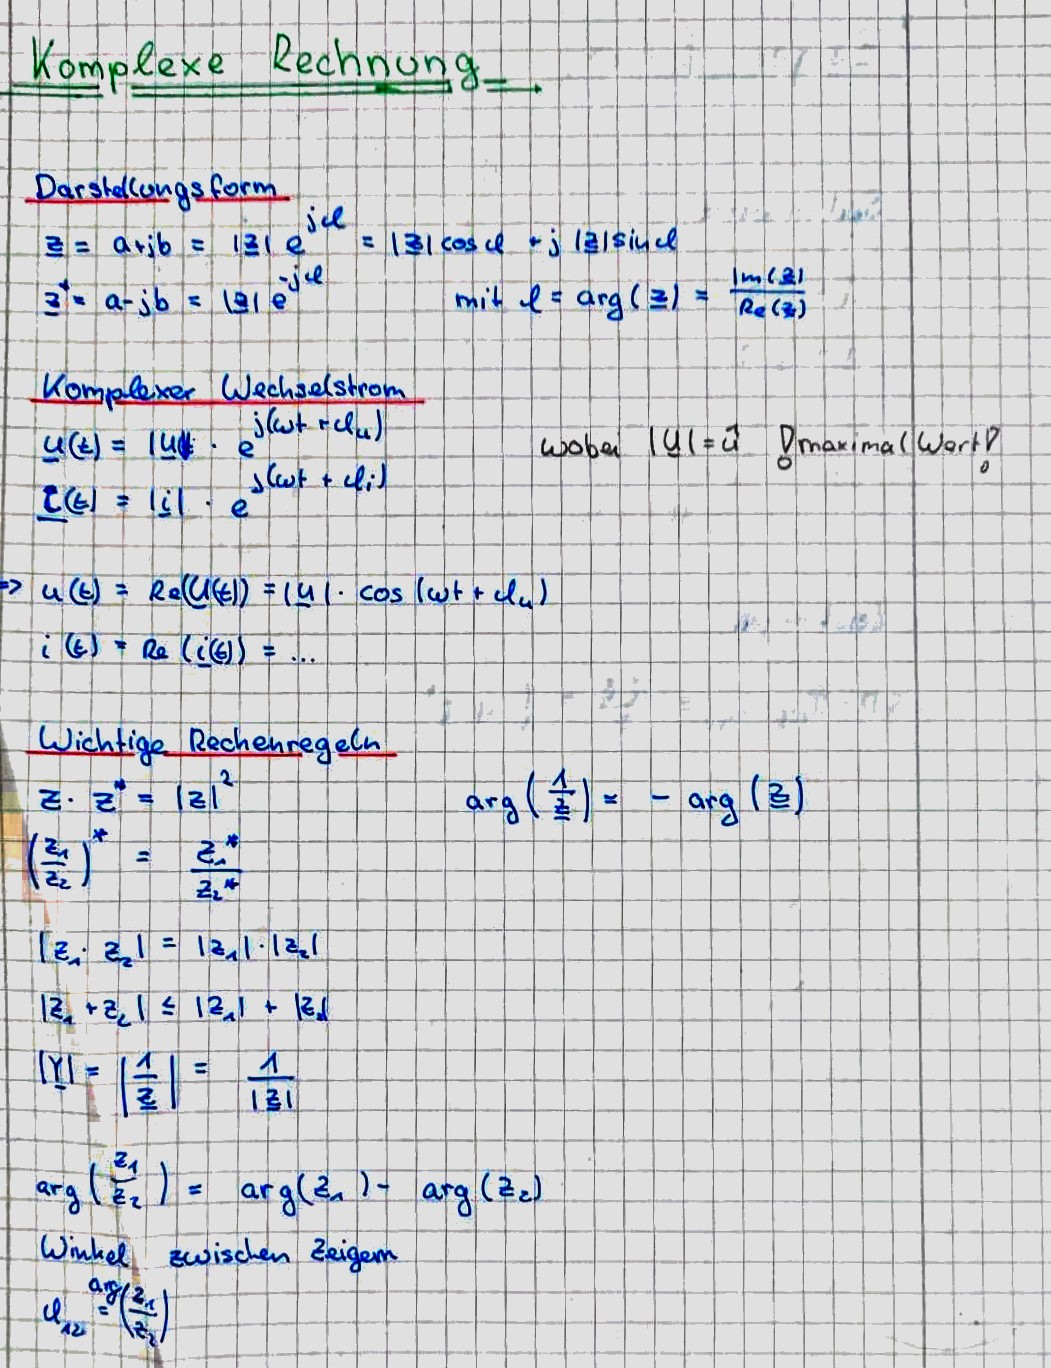 Komplexe Rechnung
Darstellungsform
z = a+jb = |z| e^{jφ} = |z| cos φ + j |z| sin φ
z* = a-jb = |z| e^{-jφ} mit φ = arg(z) = Im(z)/Re(z)
Komplexer Wechselstrom
u(t) = |u| · e^{j(ωt + φ_u)} wobei |u| = û !maximal Wert!
i(t) = |i| · e^{j(ωt + φ_i)}
=> u(t) = Re(u(t)) = |u| · cos (ωt + φ_u)
i(t) = Re (i(t)) = ...
Wichtige Rechenregeln
z · z* = |z|² arg(1/z) = - arg(z)
(z₁/z₂)* = z₁*/z₂*
|z₁ · z₂| = |z₁| · |z₂|
|z₁ + z₂| ≤ |z₁| + |z₂|
|Y| = |1/z| = 1/|z|
arg(z₁/z₂) = arg(z₁) - arg(z₂)
Winkel zwischen Zeigern
φ₁₂ = arg(z₁/z₂)